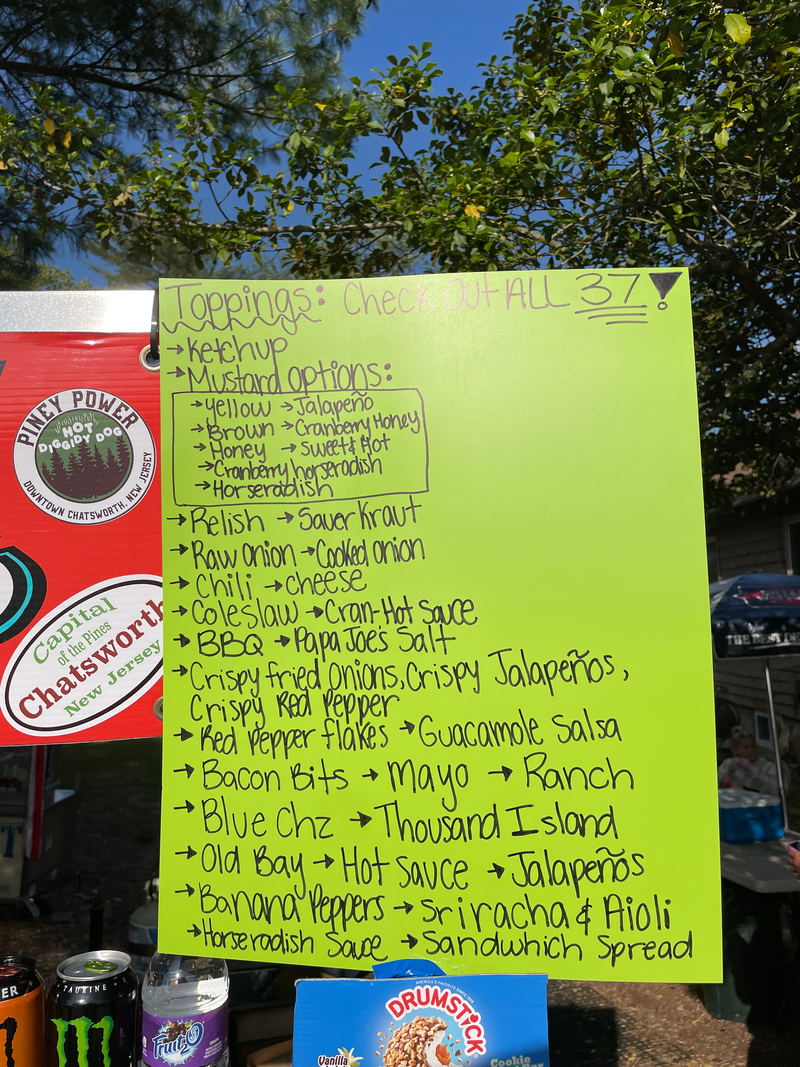 Toppings: Check Out ALL 37!
→Ketchup
→Mustard options:
→Yellow →Jalapeño
→Brown →Cranberry Honey
→Honey →Sweet & Hot
→Cranberry horseradish
→Horseradish
→Relish →Sauer Kraut
→Raw onion →Cooked onion
→Chili →cheese
→Coleslaw →Cran-Hot Sauce
→BBQ →Papa Joe's Salt
→Crispy fried Onions, Crispy Jalapeños,
Crispy Red Pepper
→Red Pepper flakes →Guacamole Salsa
→Bacon Bits →Mayo →Ranch
→Blue Chz →Thousand Island
→Old Bay →Hot Sauce →Jalapeños
→Banana Peppers →Sriracha & Aioli
→Horseradish Sauce →Sandwhich Spread
PINEY POWER
HOT
DIGGIDY DOG
DOWNTOWN CHATSWORTH, NEW JERSEY
Capital
of the Pines
Chatsworth
New Jersey
TAURINE
Fruit2O
AMERICA'S FAVORITE SINCE 1928
DRUMSTICK
Vanilla
Cookie